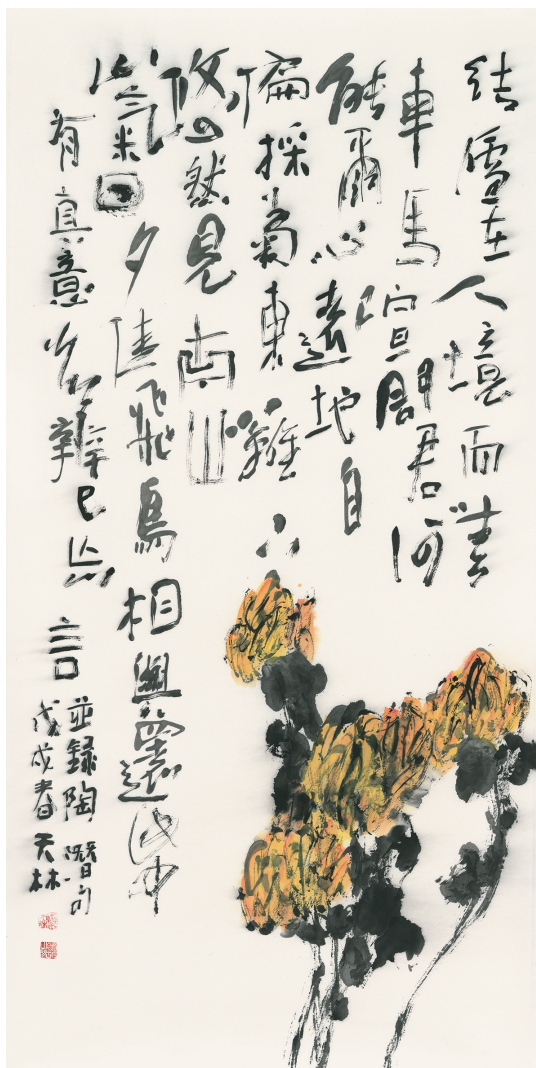 結廬在人境而無
車馬喧問君何
能爾心遠地自
偏採菊東籬下
悠然見南山
山氣日夕佳飛鳥相與還此中
有真意欲辨已忘言
並録陶潛句
戊戌春天林